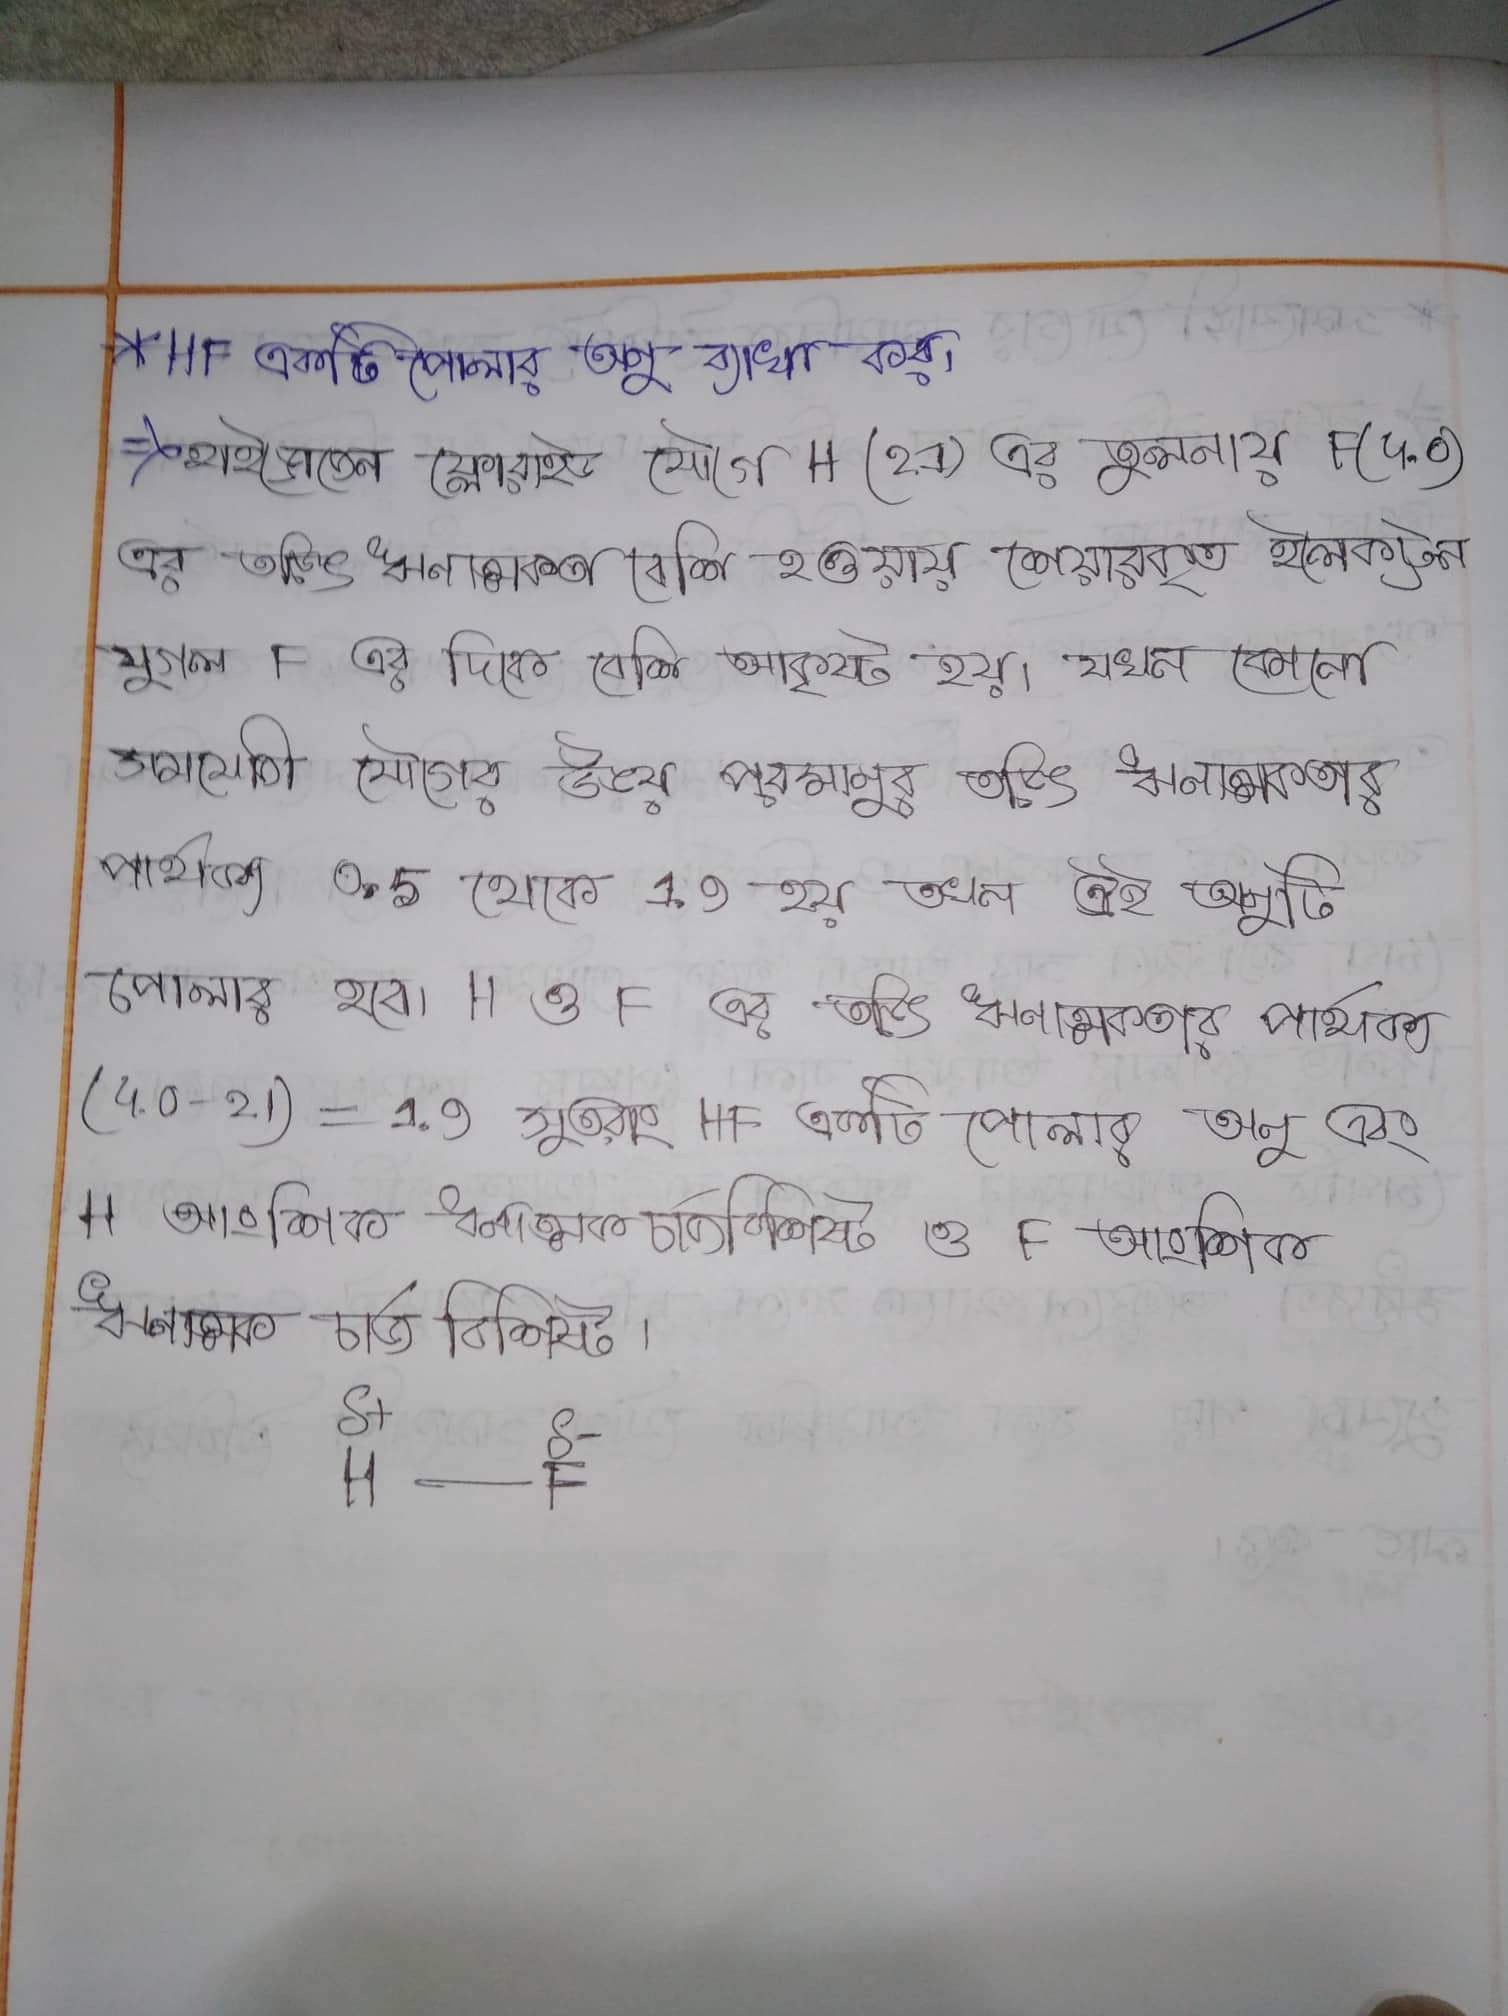 * HF একটি পোলার অনু ব্যাখা কর।
⇒ হাইড্রোজেন ফ্লোরাইড যৌগে H (2.1) এর তুলনায় F(4.0)
এর তড়িৎ ঋনাত্মকতা বেশি হওয়ায় শেয়ারকৃত ইলেকট্রন
যুগল F এর দিকে বেশি আকৃষ্ট হয়। যখন কোনো
সমযোজী যৌগের উভয় পরমানুর তড়িৎ ঋনাত্মকতার
পার্থক্য 0.5 থেকে 1.9 হয় তখন ঐই অনুটি
পোলার হবে। H ও F এর তড়িৎ ঋনাত্মকতার পার্থক্য
(4.0-2.1) = 1.9 সুতরাং HF একটি পোলার অনু এবং
H আংশিক ধনাত্মক চার্জ বিশিষ্ট ও F আংশিক
ঋনাত্মক চার্জ বিশিষ্ট।
δ+ δ-
H — F